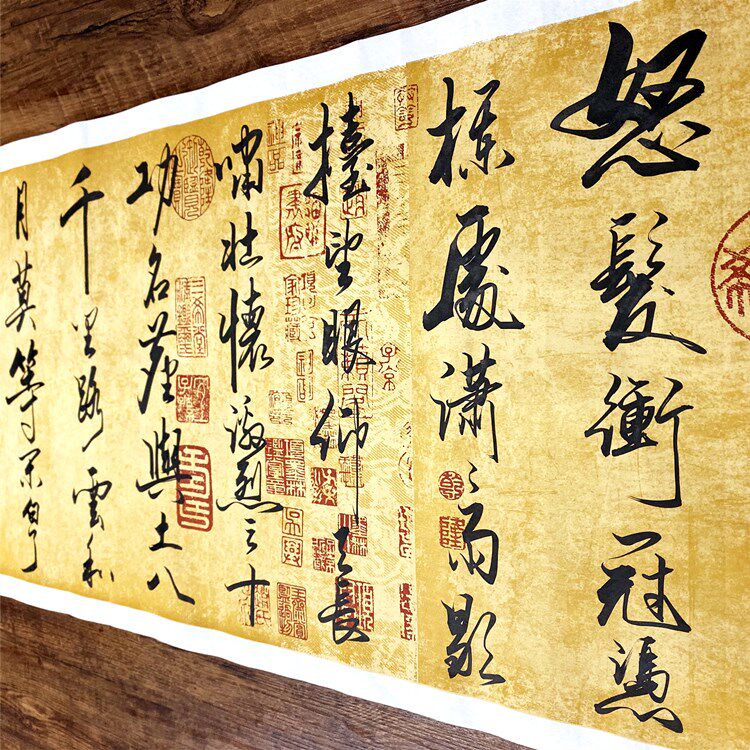 怒髮衝冠憑
欄處瀟々雨歇
擡望眼仰天長
嘯壯懷激烈三十
功名塵與土八
千里路雲和
月莫等閒白